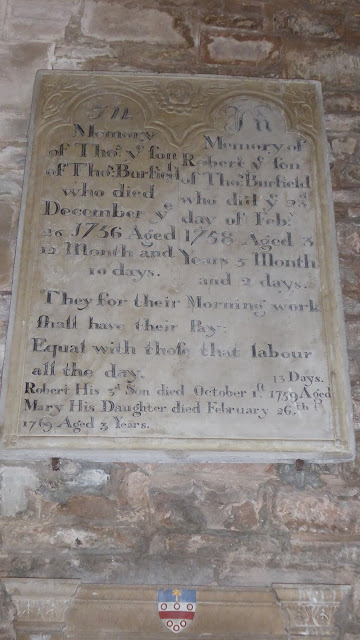 In
Memory
of Tho.s y.e son
of Tho.s Burfield
who died
December y.e
26 1756 Aged
12 Month and
10 days.
In
Memory of
Robert y.e son
of Tho.s Burfield
who did y.e
day of Feb.
1758 Aged 3
Years 5 Month
and 2 days.
They for their Morning work
shall have their Pay.
Equal with those that labour
all the day.
13 Days.
Robert His 3.d Son died October 1.st 1759 Aged
Mary His Daughter died February 26.th
1769 Aged 3 Years.